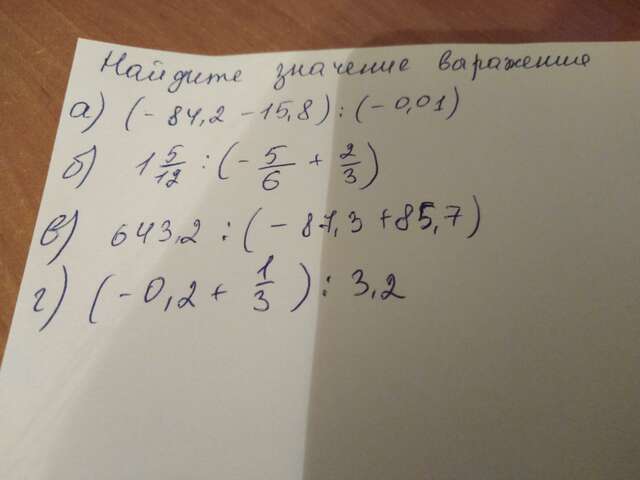 Найдите значение варажение
а) (-84,2 -15,8) : (-0,01)
б) 1 5/12 : (- 5/6 + 2/3)
в) 643,2 : (-87,3 +85,7)
г) (-0,2 + 1/3) : 3,2